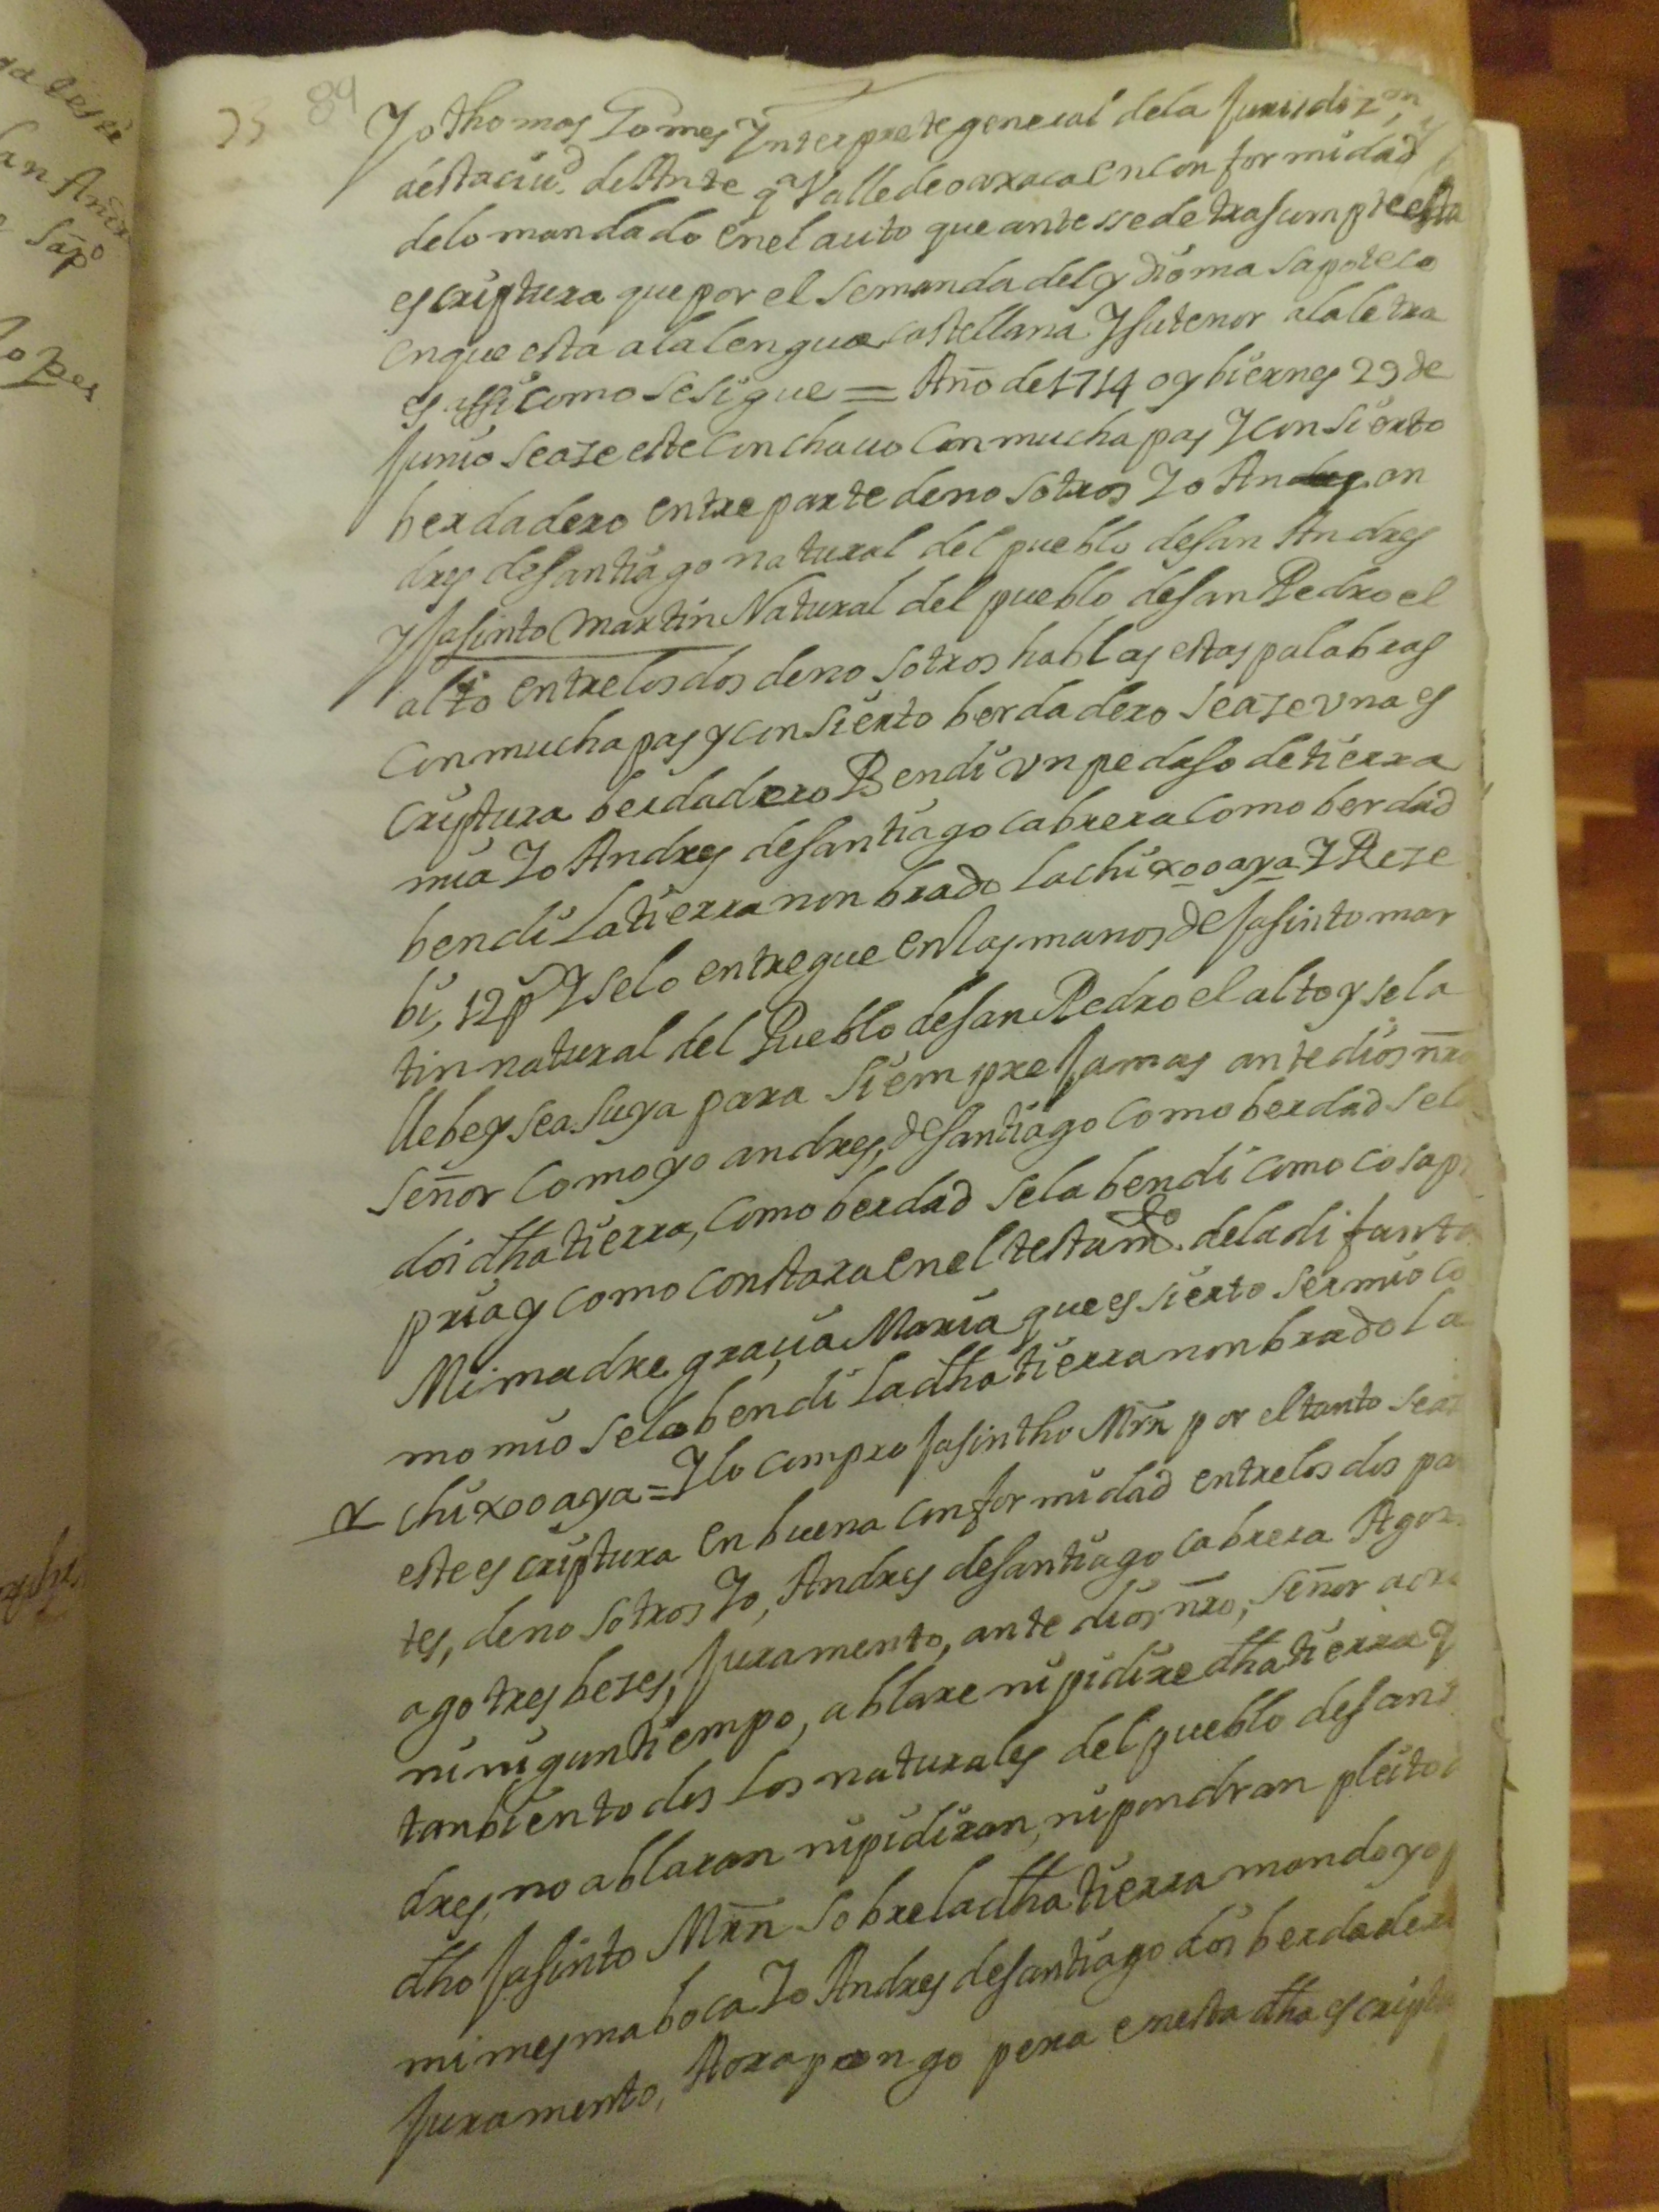 23 89
Yo thomas Gomes Ynterprete general dela Jurisdizⁿ
destaciuᵈ. deAnteqᵃ Valle de oaxaca en con for midad
delo mandado en el auto que antessede trasumpte esta
escriptura que por el se manda del ydioma sapoteco
en que esta ala lengua castellana Y su tenor ala letra
es assi como se sigue = Año de 1714 oy biernes 29 de
Junio se aze este conchauo con mucha pas Y con sierto
berdadero entre parte de no sotros Yo An an
dres de santiago natural del pueblo de san Andres
Y Jasinto Martin Natural del pueblo de san Pedro el
alto entre los dos de no sotros hablas estas palabras
con mucha pas y con sierto berdadero se aze vna es
criptura berdadero Bendi vn pedaso de tierra
mia Yo Andres de santiago cabrera como berdad
bendi la tierra non brado lachixooaya Y Reze
bi, 12 pˢ Y se lo entregue en las manos de Jasinto mar
tin natural del Pueblo de san Pedro el alto y se la
llebe y sea suya para siem pre Jamas ante dios nro
señor como yo andres, de santiago como berdad se la
doi dha tierra, como berdad se la bendi como cosa pr
pria y como constara en el testamᵗᵒ. dela di funta
Mi madre graçia Maria que es sierto ser mio co
mo mio se la bendi la dha tierra non brado la
chixooaya = Y lo compro Jasintho Mrn por el tanto se az
este escriptura en buena confor midad entre los dos par
tes, de no sotros Yo, Andres de santiago cabrera Agora
ago tres bezes, Juramento, ante dios nro, señor aora
ni nigun tiempo, ablare ni pidire dha tierra Y
tanbien todos los naturales del pueblo de san an
dres, no ablaran ni pidiran, ni pondran pleito a
dho Jasinto Mrn sobre la dha tierra mando yo p
mi mesma boca Yo Andres de santiago dos berdadero
Juramento, Aora pongo pena en esta dha escriptu